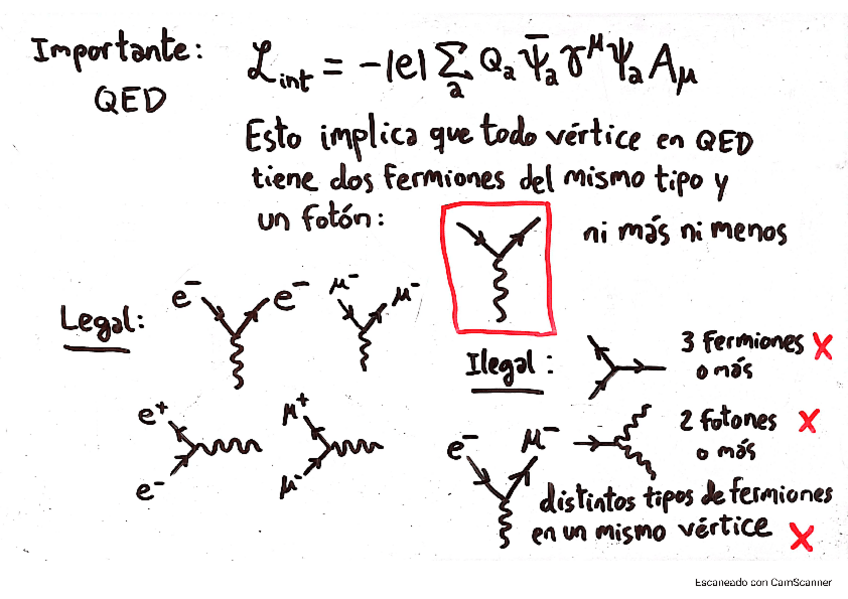 Importante:
QED
ℒint = -|e| ∑a Qa Ψ̄a γ^μ Ψa Aμ
Esto implica que todo vértice en QED
tiene dos fermiones del mismo tipo y
un fotón:
ni más ni menos
Legal:
e⁻ e⁻ μ⁻ μ⁻
e⁺ μ⁺
e⁻ μ⁻
Ilegal:
3 fermiones X
o más
2 fotones X
o más
e⁻ μ⁻
distintos tipos de fermiones
en un mismo vértice X
Escaneado con CamScanner